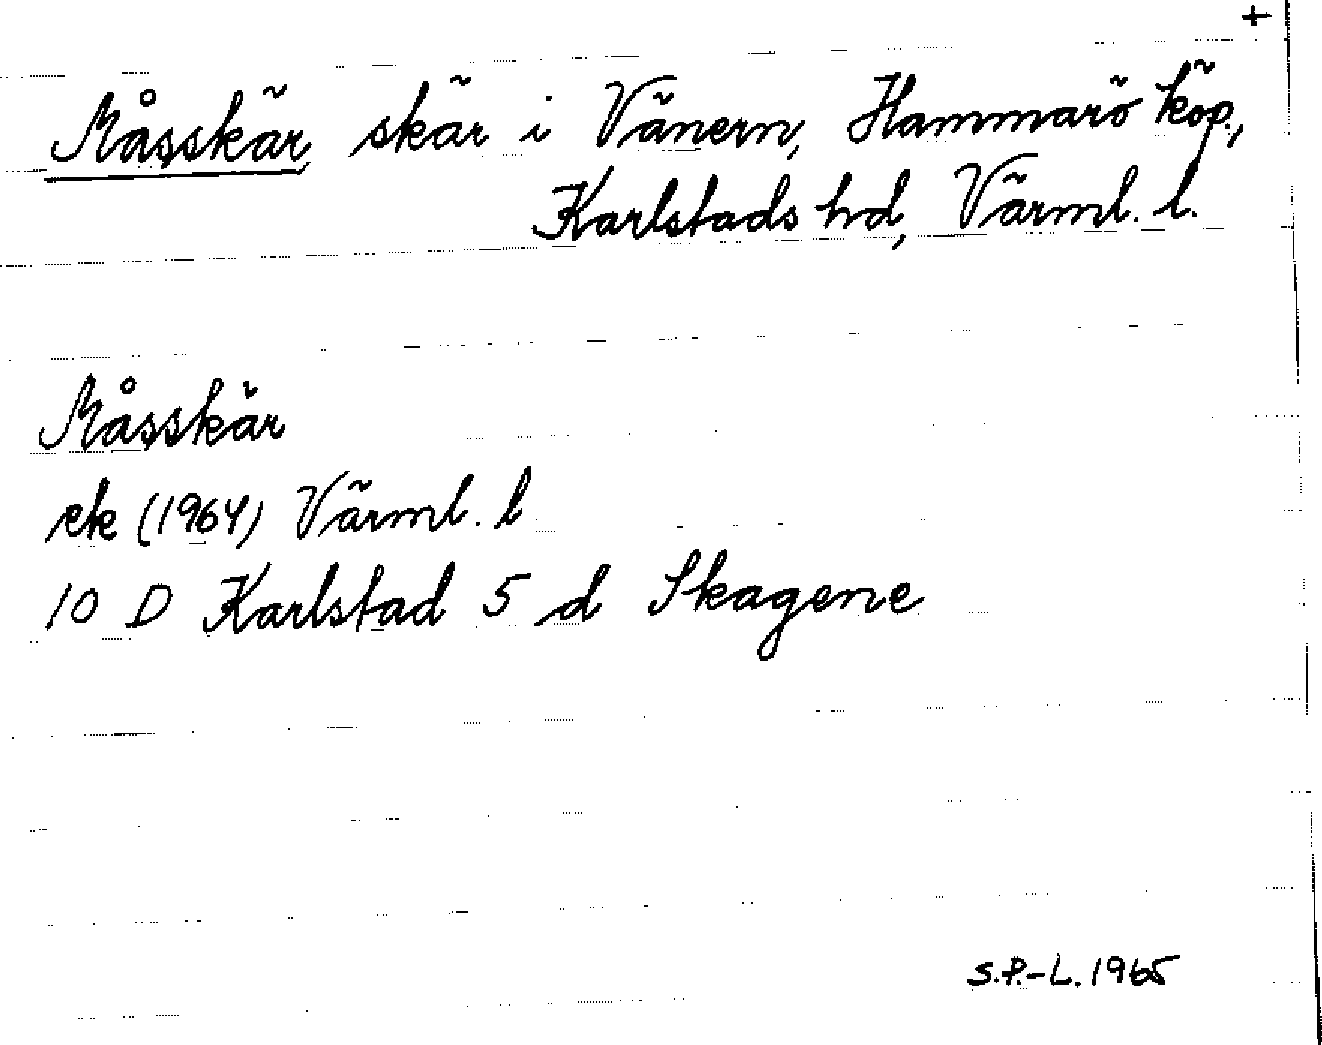 +
Måsskär, skär i Vänern, Hammarö köp.,
Karlstads hd, Värml. l.
Måsskär
ek (1964) Värml. l
10 D Karlstad 5 d Skagene
S.P.-L. 1965